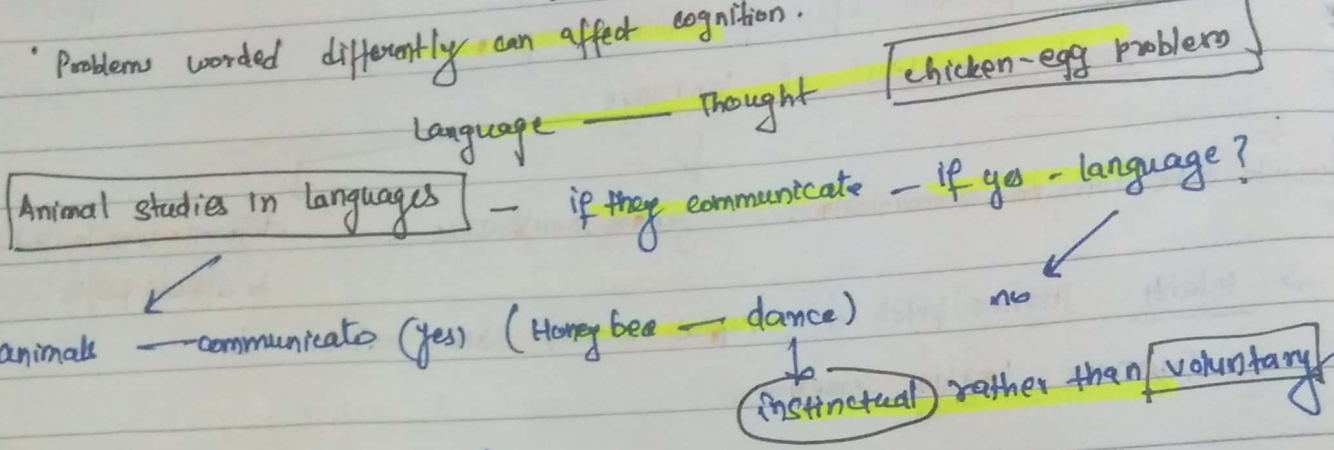 • Problems worded differently can affect cognition.
Language — Thought chicken-egg problem
Animal studies in languages — if they communicate – if yes - language?
no
animals — communicate (yes) (Honey bee — dance)
instinctual rather than voluntary